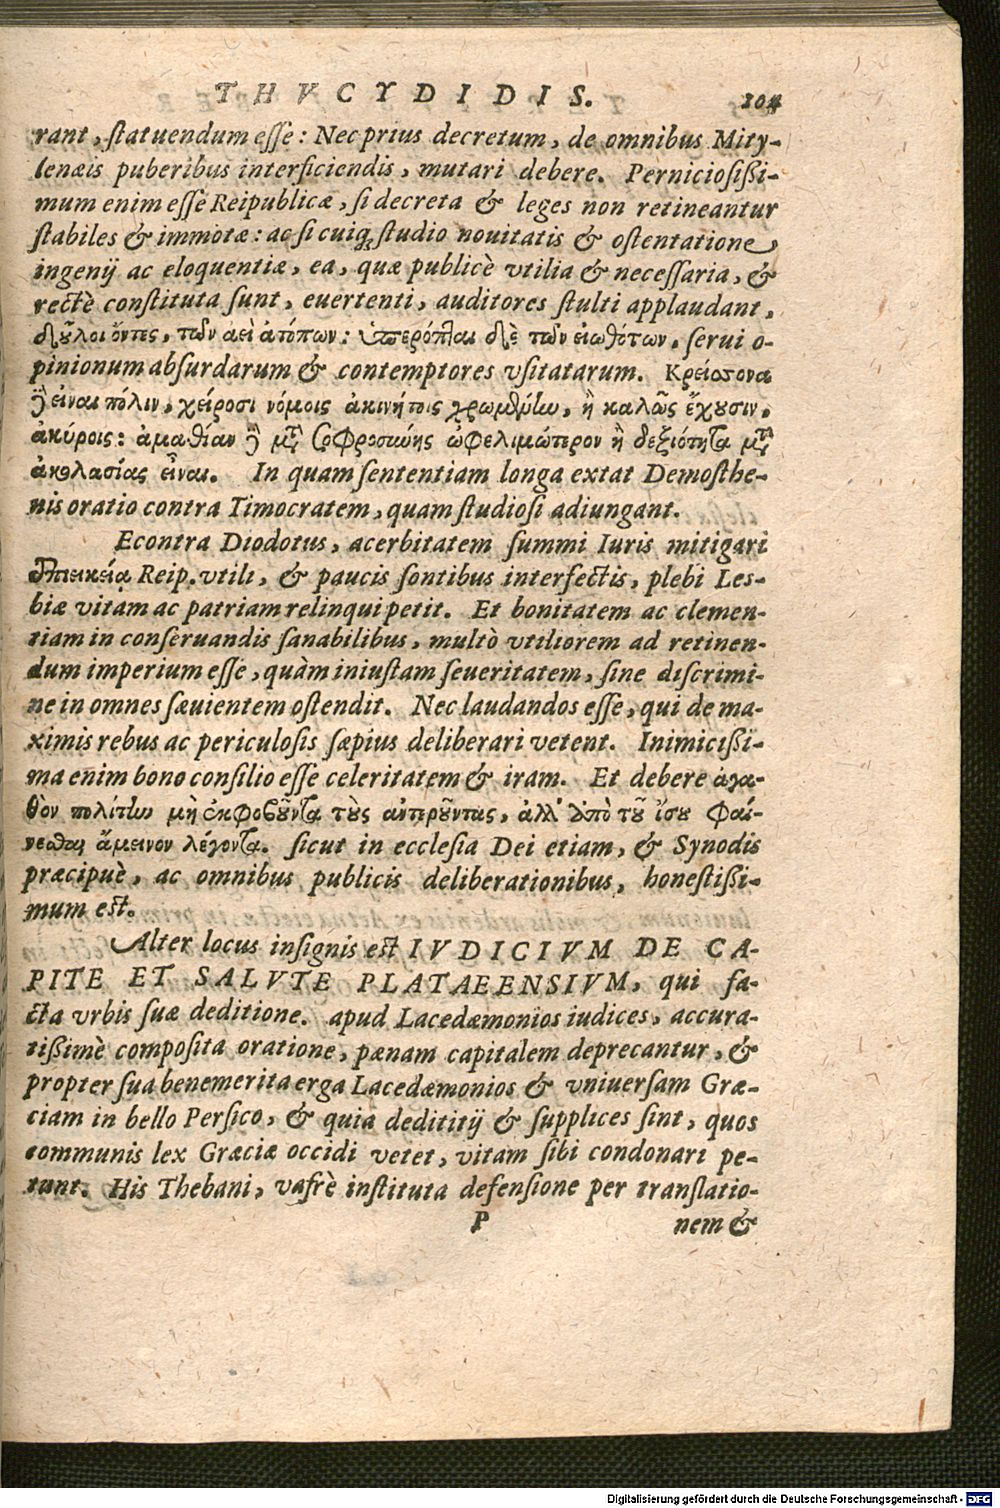 THVCYDIDIS. 104
rant, statuendum esse: Nec prius decretum, de omnibus Mity-
lenæis puberibus interficiendis, mutari debere. Perniciosißi-
mum enim esse Reipublicæ, si decreta & leges non retineantur
stabiles & immotæ: ac si cuiq; studio nouitatis & ostentatione,
ingenij ac eloquentiæ, ea, quæ publicè vtilia & necessaria, &
rectè constituta sunt, euertenti, auditores stulti applaudant,
δοῦλοι ὄντες, τῶν αεὶ ἀτόπων: ὑπερόπται δὲ τῶν εἰωθότων, serui o-
pinionum absurdarum & contemptores vsitatarum. Κρείσσονα
δ' εἶναι πόλιν, χείροσι νόμοις ἀκινήτοις χρωμένην, ἢ καλῶς ἔχουσιν,
ἀκύροις: ἀμαθίαν δὲ μετὰ σοφροσύνης ὠφελιμώτερον ἢ δεξιότητα μετὰ
ἀκολασίας εἶναι. In quam sententiam longa extat Demosthe-
nis oratio contra Timocratem, quam studiosi adiungant.
Econtra Diodotus, acerbitatem summi Iuris mitigari
ἐπιεικείᾳ Reip. vtili, & paucis sontibus interfectis, plebi Les-
biæ vitam ac patriam relinqui petit. Et bonitatem ac clemen-
tiam in conseruandis sanabilibus, multò vtiliorem ad retinen-
dum imperium esse, quàm iniustam seueritatem, sine discrimi-
ne in omnes sæuientem ostendit. Nec laudandos esse, qui de ma-
ximis rebus ac periculosis sæpius deliberari vetent. Inimicißi-
ma enim bono consilio esse celeritatem & iram. Et debere ἀγα-
θὸν πολίτην μὴ ἐκφοβοῦντα τοὺς ἀντεροῦντας, ἀλλ' ἀπὸ τοῦ ἴσου φαί-
νεσθαι ἄμεινον λέγοντα. sicut in ecclesia Dei etiam, & Synodis
præcipuè, ac omnibus publicis deliberationibus, honestißi-
mum est.
Alter locus insignis est IVDICIVM DE CA-
PITE ET SALVTE PLATAEENSIVM, qui fa-
cta vrbis suæ deditione. apud Lacedæmonios iudices, accura-
tißimè composita oratione, pænam capitalem deprecantur, &
propter sua benemerita erga Lacedæmonios & vniuersam Græ-
ciam in bello Persico, & quia dedititij & supplices sint, quos
communis lex Græciæ occidi vetet, vitam sibi condonari pe-
tunt. His Thebani, vafrè instituta defensione per translatio-
P nem &
Digitalisierung gefördert durch die Deutsche Forschungsgemeinschaft - DFG